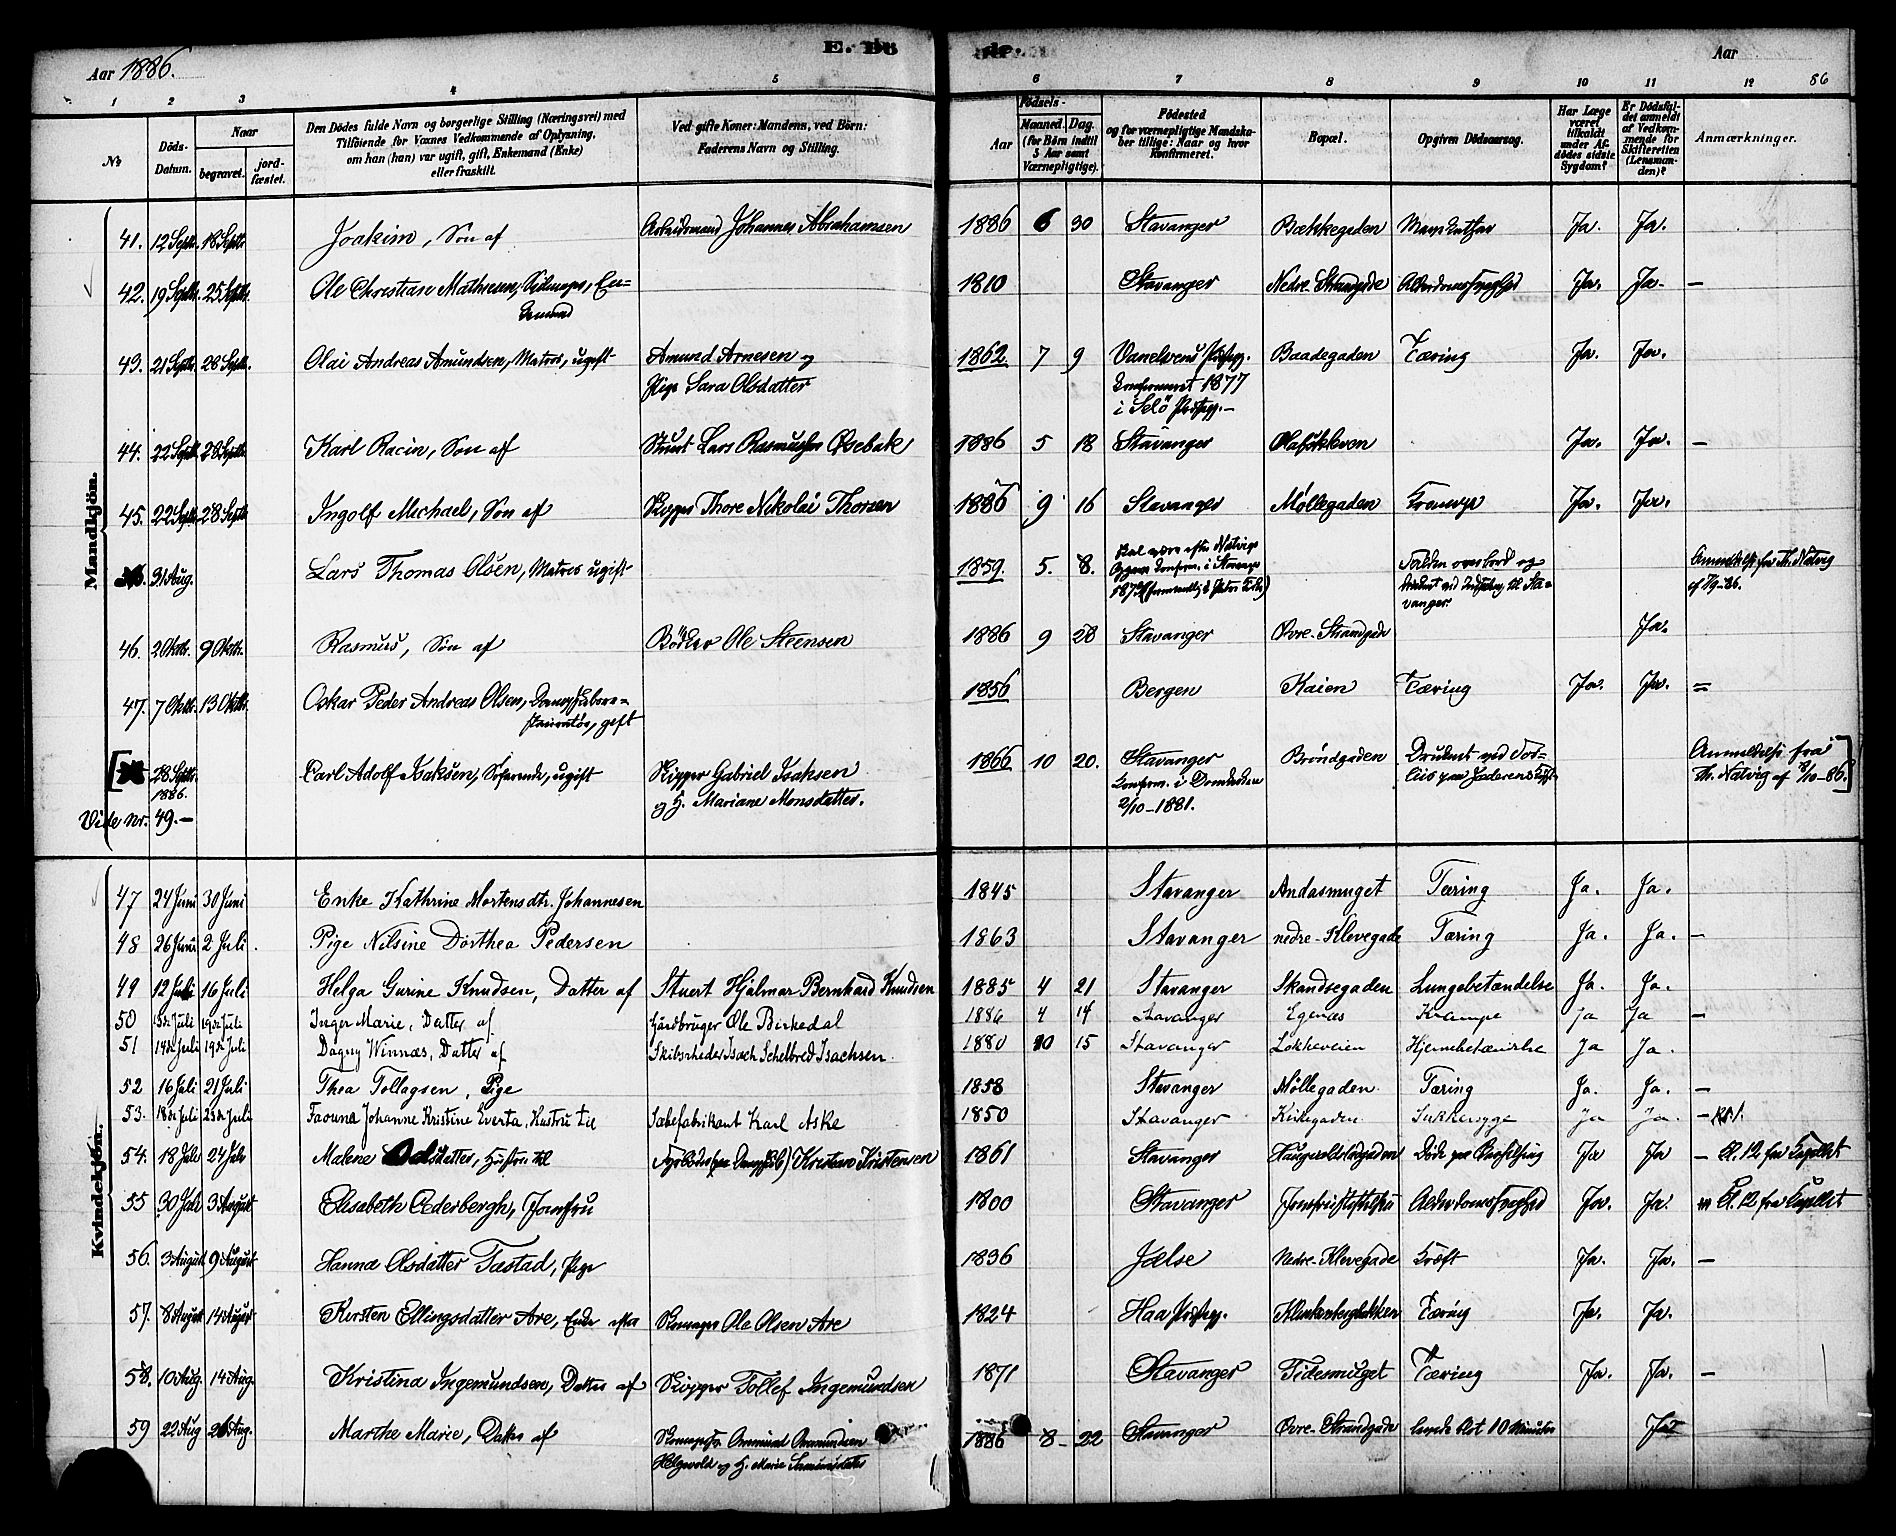 Aar 1886.
E. Dö
de.
Aar
86
1 2 3 4 5 6 7 8 9 10 11 12
No
Döds-Datum.
Naar
begravet.
jord-fæstet.
Den Dödes fulde Navn og borgerlige Stilling (Næringsvei) med
Tilföiende for Voxnes Vedkommende af Oplysning,
om han (hun) var ugift, gift, Enkemand (Enke)
eller fraskilt.
Ved gifte Koner: Mandens, ved Börn:
Faderens Navn og Stilling.
Födsels-
Aar
Maaned. Dag.
(for Börn indtil
5 Aar samt
Værnepligtige).
Födested
og for værnepligtige Mandska-
ber tillige: Naar og hvor
konfirmeret.
Bopæl.
Opgiven Dödsaarsag.
Har Læge
været
tilkaldt
under Af-
dödes sidste
Sygdom?
Er Dödsfal-
det anmeldt
af Vedkom-
mende for
Skifteretten
(Lensman-
den)?
Anmærkninger.
Mandkjön.
41. 12 Septr. 18 Septr. Joakim, Søn af Arbeidsmand Johannes Abrahamsen 1886 6 30 Stavanger Bækkegaden Ja. Ja.
42. 19 Septr. 25 Septr. Ole Christian Mathiesen, Enkemand 1810 Stavanger Nedre-Strandgade Alderdomssvaghed Ja. Ja. —
43. 21 Septr. 28 Septr. Olai Andreas Amundsen, Matros, ugift Amund Arnesen og 1862 7 9 Vanelvens Præstegj. Baadegaden Tæring Ja. Ja.
Pige Sara Olsdatter Konfirmeret 1877
i Selö Præstegj. —
44. 22 Septr. 28 Septr. Karl Racin, Søn af Stuert Lars Rasmussen Østebak 1886 5 18 Stavanger Olafskleven Ja. Ja. —
45. 22 Septr. 28 Septr. Ingolf Michael, Søn af Skipper Thore Nikolai Thorsen 1886 9 16 Stavanger Møllegaden Ja. Ja.
31 Aug. Lars Thomas Olsen, Matros ugift 1859. 5. 8. Skal være efter Natvigs
Opgave konfirm. i Stavanger Falden overbord og
druknet ved Indseiling til Sta-
vanger. Anmeldelse fra Th. Natvig
46. 2 Oktr. 9 Oktr. Rasmus, Søn af Bödker Ole Steensen 1886 9 28 Stavanger Øvre-Strandgade Ja.
47. 7 Oktr. 13 Oktr. Oskar Peder Andreas Olsen, gift 1856 Bergen Kaien Tæring Ja. Ja. =
28 Septr.
1886. Carl Adolf Isaksen, Søfarende, ugift Skipper Gabriel Isaksen
og H. Mariane Monsdatter. 1866 10 20. Stavanger
Konfirm. i Domkirken
2/10 - 1881. Brøndgaden Druknet ved For-
liis paa Jæderens Anmeldelse fra
Th. Natvig af 8/10 - 86.
Vide Nr. 49. —
Kvindekjön.
47 24 Juni 30 Juni Enke Kathrine Mortensdtr. Johannesen 1845 Stavanger Andasmuget Tæring Ja. Ja.
48 26 Juni 2 Juli. Pige Nilsine Dorthea Pedersen 1863 Stavanger nedre-Klevegade Tæring Ja. Ja. —
49 12 Juli 16 Juli Helga Gurine Knudsen, Datter af Stuert Hjalmar Bernhard Knudsen 1885 4 21 Stavanger Skandsegaden Lungebetændelse Ja. Ja.
50 15de Juli 19de Juli Inger Marie, Datter af Gårdbruger Ole Birkedal 1886 4 14 Stavanger Egenæs Krampe ja ja —
51 14de Juli 19de Juli Dagny Winnæs, Datter af Skibsrheder Isach Schelbred Isachsen. 1880 10 15 Stavanger Løkkeveien Hjernebetændelse ja ja.
52 16 Juli 21 Juli Thea Tollagsen, Pige 1858 Stavanger Møllegaden. Tæring Ja. Ja. —
53. 18de Juli 23de Juli Johanne Kristine Everta, Hustru til Sæbefabrikant Karl Aske 1850 Stavanger Kirkegaden. Sukkersyge ja ja. —
54. 18 Juli 24 Juli Malene Oddsdatter, Hustru til Fyrbøder (paa Dampskib) Kristian Kristensen 1861 Stavanger Ja Ja — Kl. 12 fra Capellet
55 30 Juli 3 August Elisabeth Cederbergh, Jomfru 1800 Stavanger Jomfrustiftelsen Alderdomssvaghed Ja. Ja. Kl. 12 fra Capellet
56. 3 August. 9 August Hanna Olsdatter Tastad, Pige 1836 Jælse Nedre-Klevegade Kræft Ja. Ja. —
57. 8 August 14 August Kirsten Ellingsdatter Are, Enke efter Ole Olsen Are 1824 Haa Præstegj. Tæring Ja. Ja.
58. 10 Aug. 14 Aug. Kristina Ingemundsen, Datter af Skipper Tollef Ingemundsen 1871 Stavanger Fidesmuget Tæring Ja. Ja. —
59 22 Aug 26 Aug. Marthe Marie, Datter af 1886 8 - 22 Stavanger Øvre-Strandgade levede blot 10 Minutter Ja